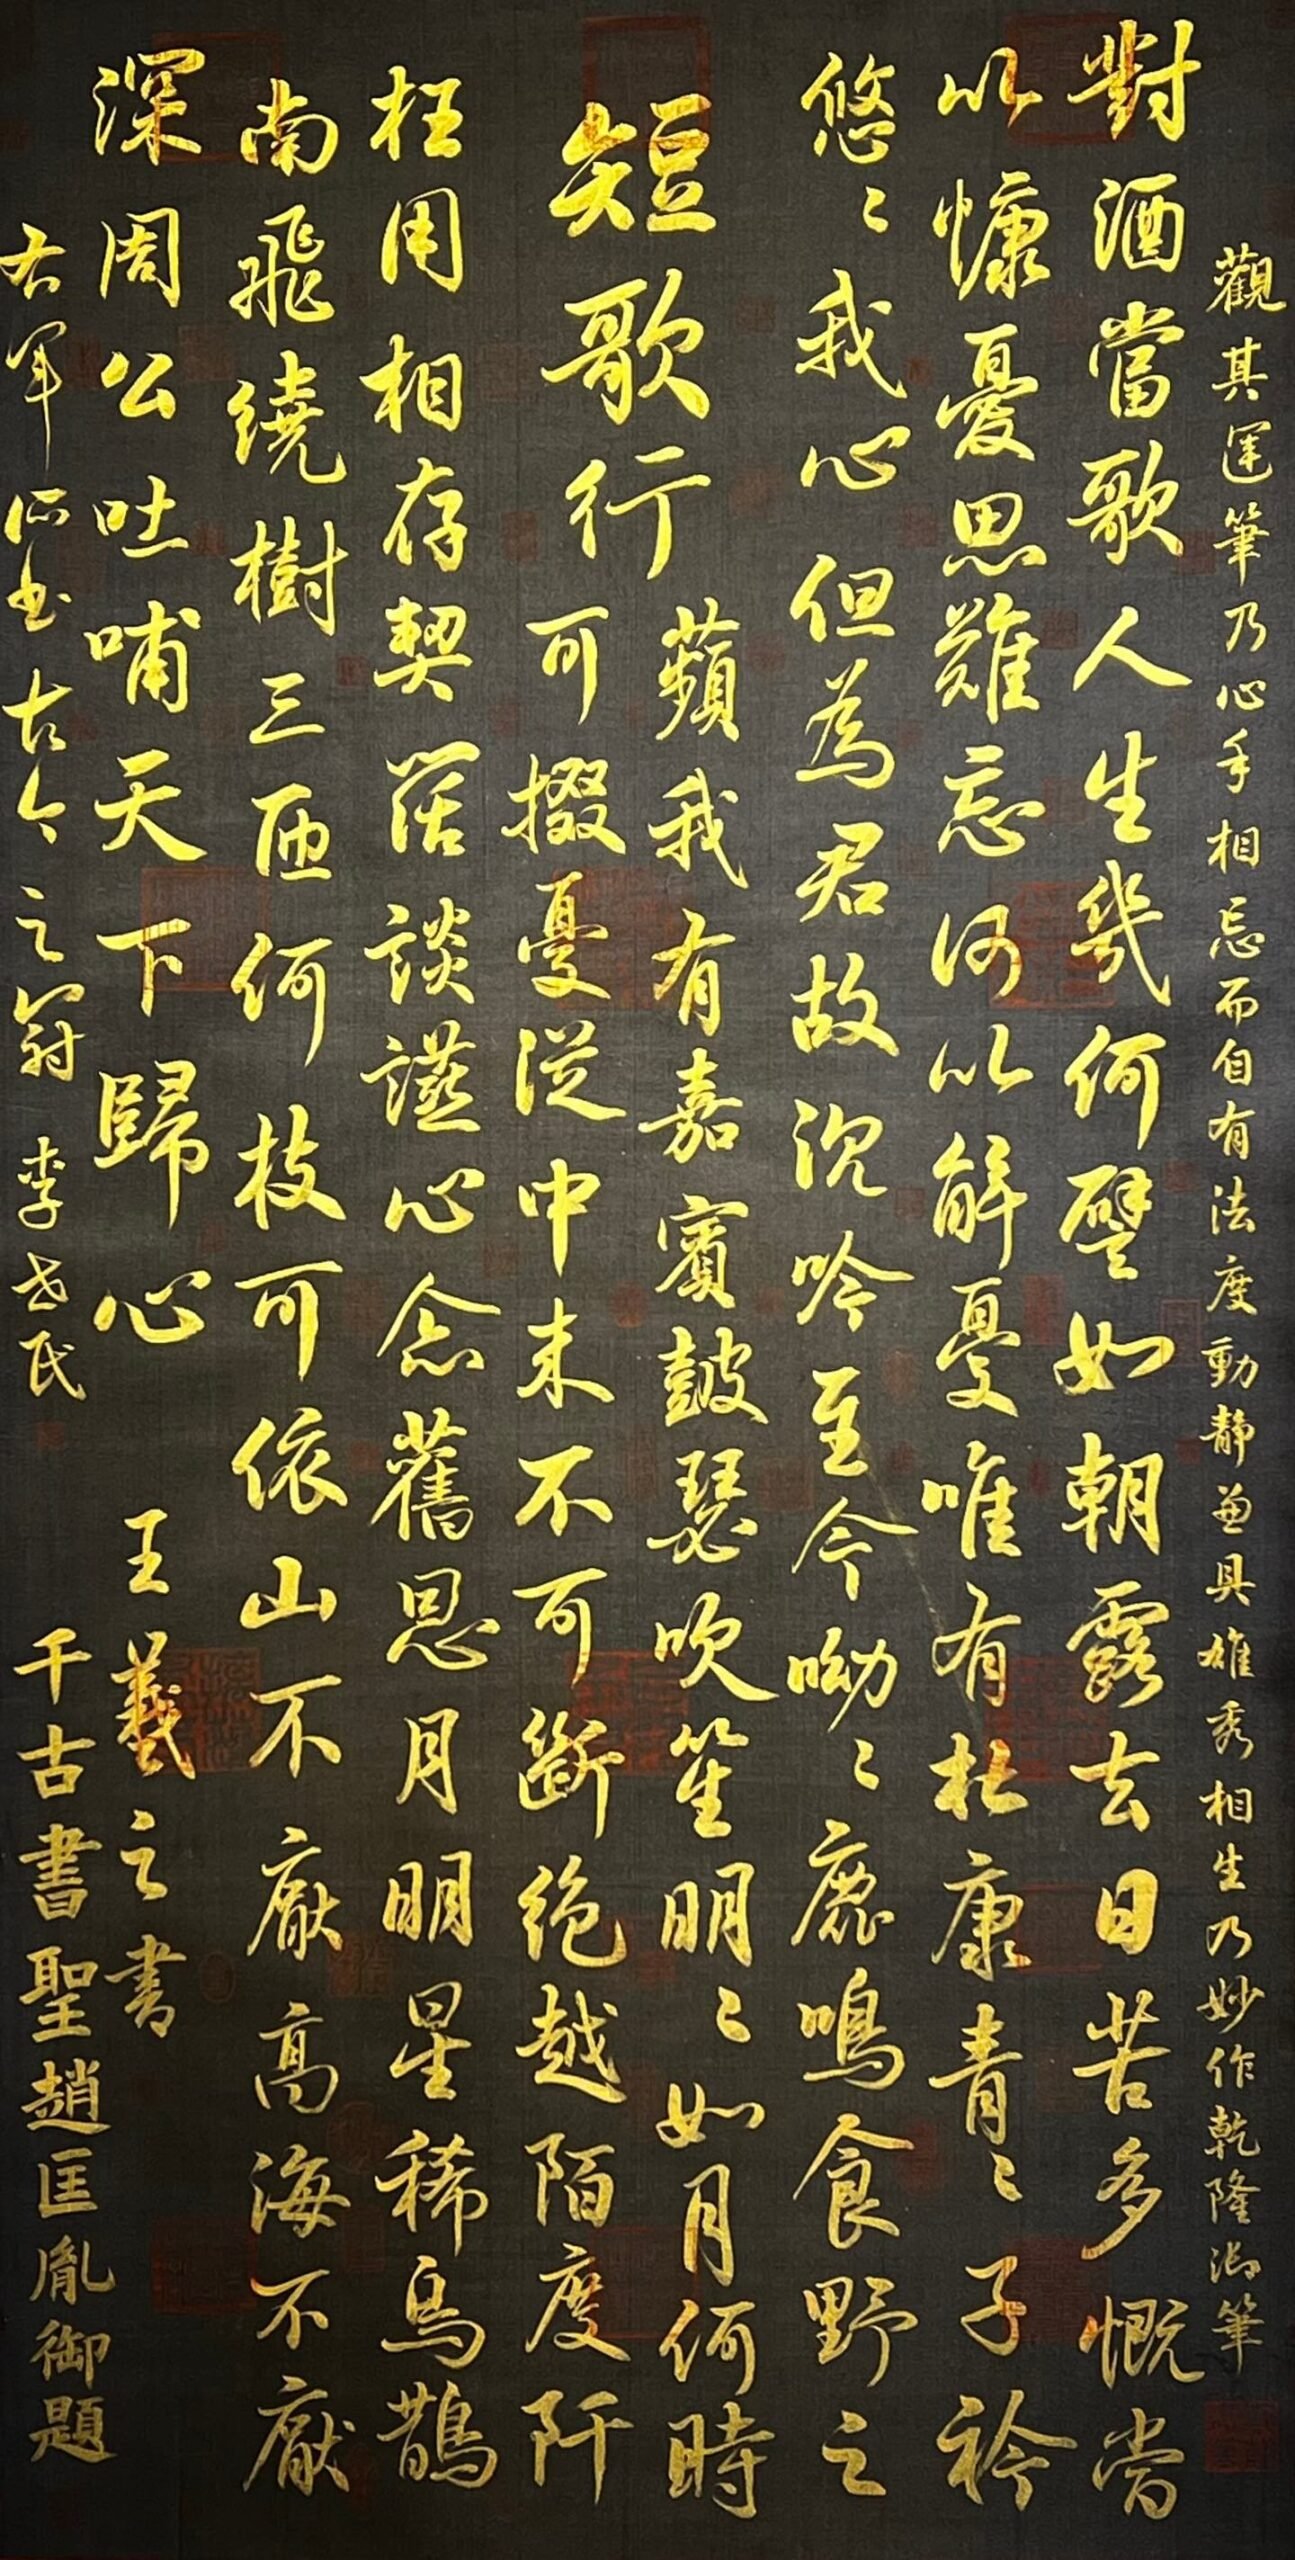 觀其運筆乃心手相忘而自有法度動靜兼具雄秀相生乃妙作乾隆御筆
對酒當歌人生幾何譬如朝露去日苦多慨當
以慷憂思難忘何以解憂唯有杜康青〻子衿
悠〻我心但為君故沉吟至今呦〻鹿鳴食野之
短歌行
蘋我有嘉賓鼓瑟吹笙明〻如月何時
可掇憂從中來不可斷絕越陌度阡
枉用相存契闊談讌心念舊恩月明星稀烏鵲
南飛繞樹三匝何枝可依山不厭高海不厭
深周公吐哺天下歸心
王羲之書
右軍所書古今之冠 李世民
千古書聖趙匡胤御題